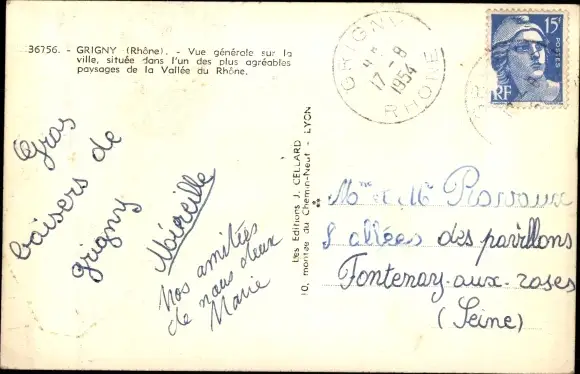 36756. - GRIGNY (Rhône). - Vue générale sur la
ville, située dans l'un des plus agréables
paysages de la Vallée du Rhône.
GRIGNY
17-8
1954
RHONE
15F
POSTES
RF
Gros
baisers de
grigny
Mireille
Nos amitiés
de nous deux
Marie
Les Editions J. CELLARD
10, montée du Chemin-Neuf - LYON
Mme et Mr
allées des pavillons
Fontenay-aux-roses
(Seine)